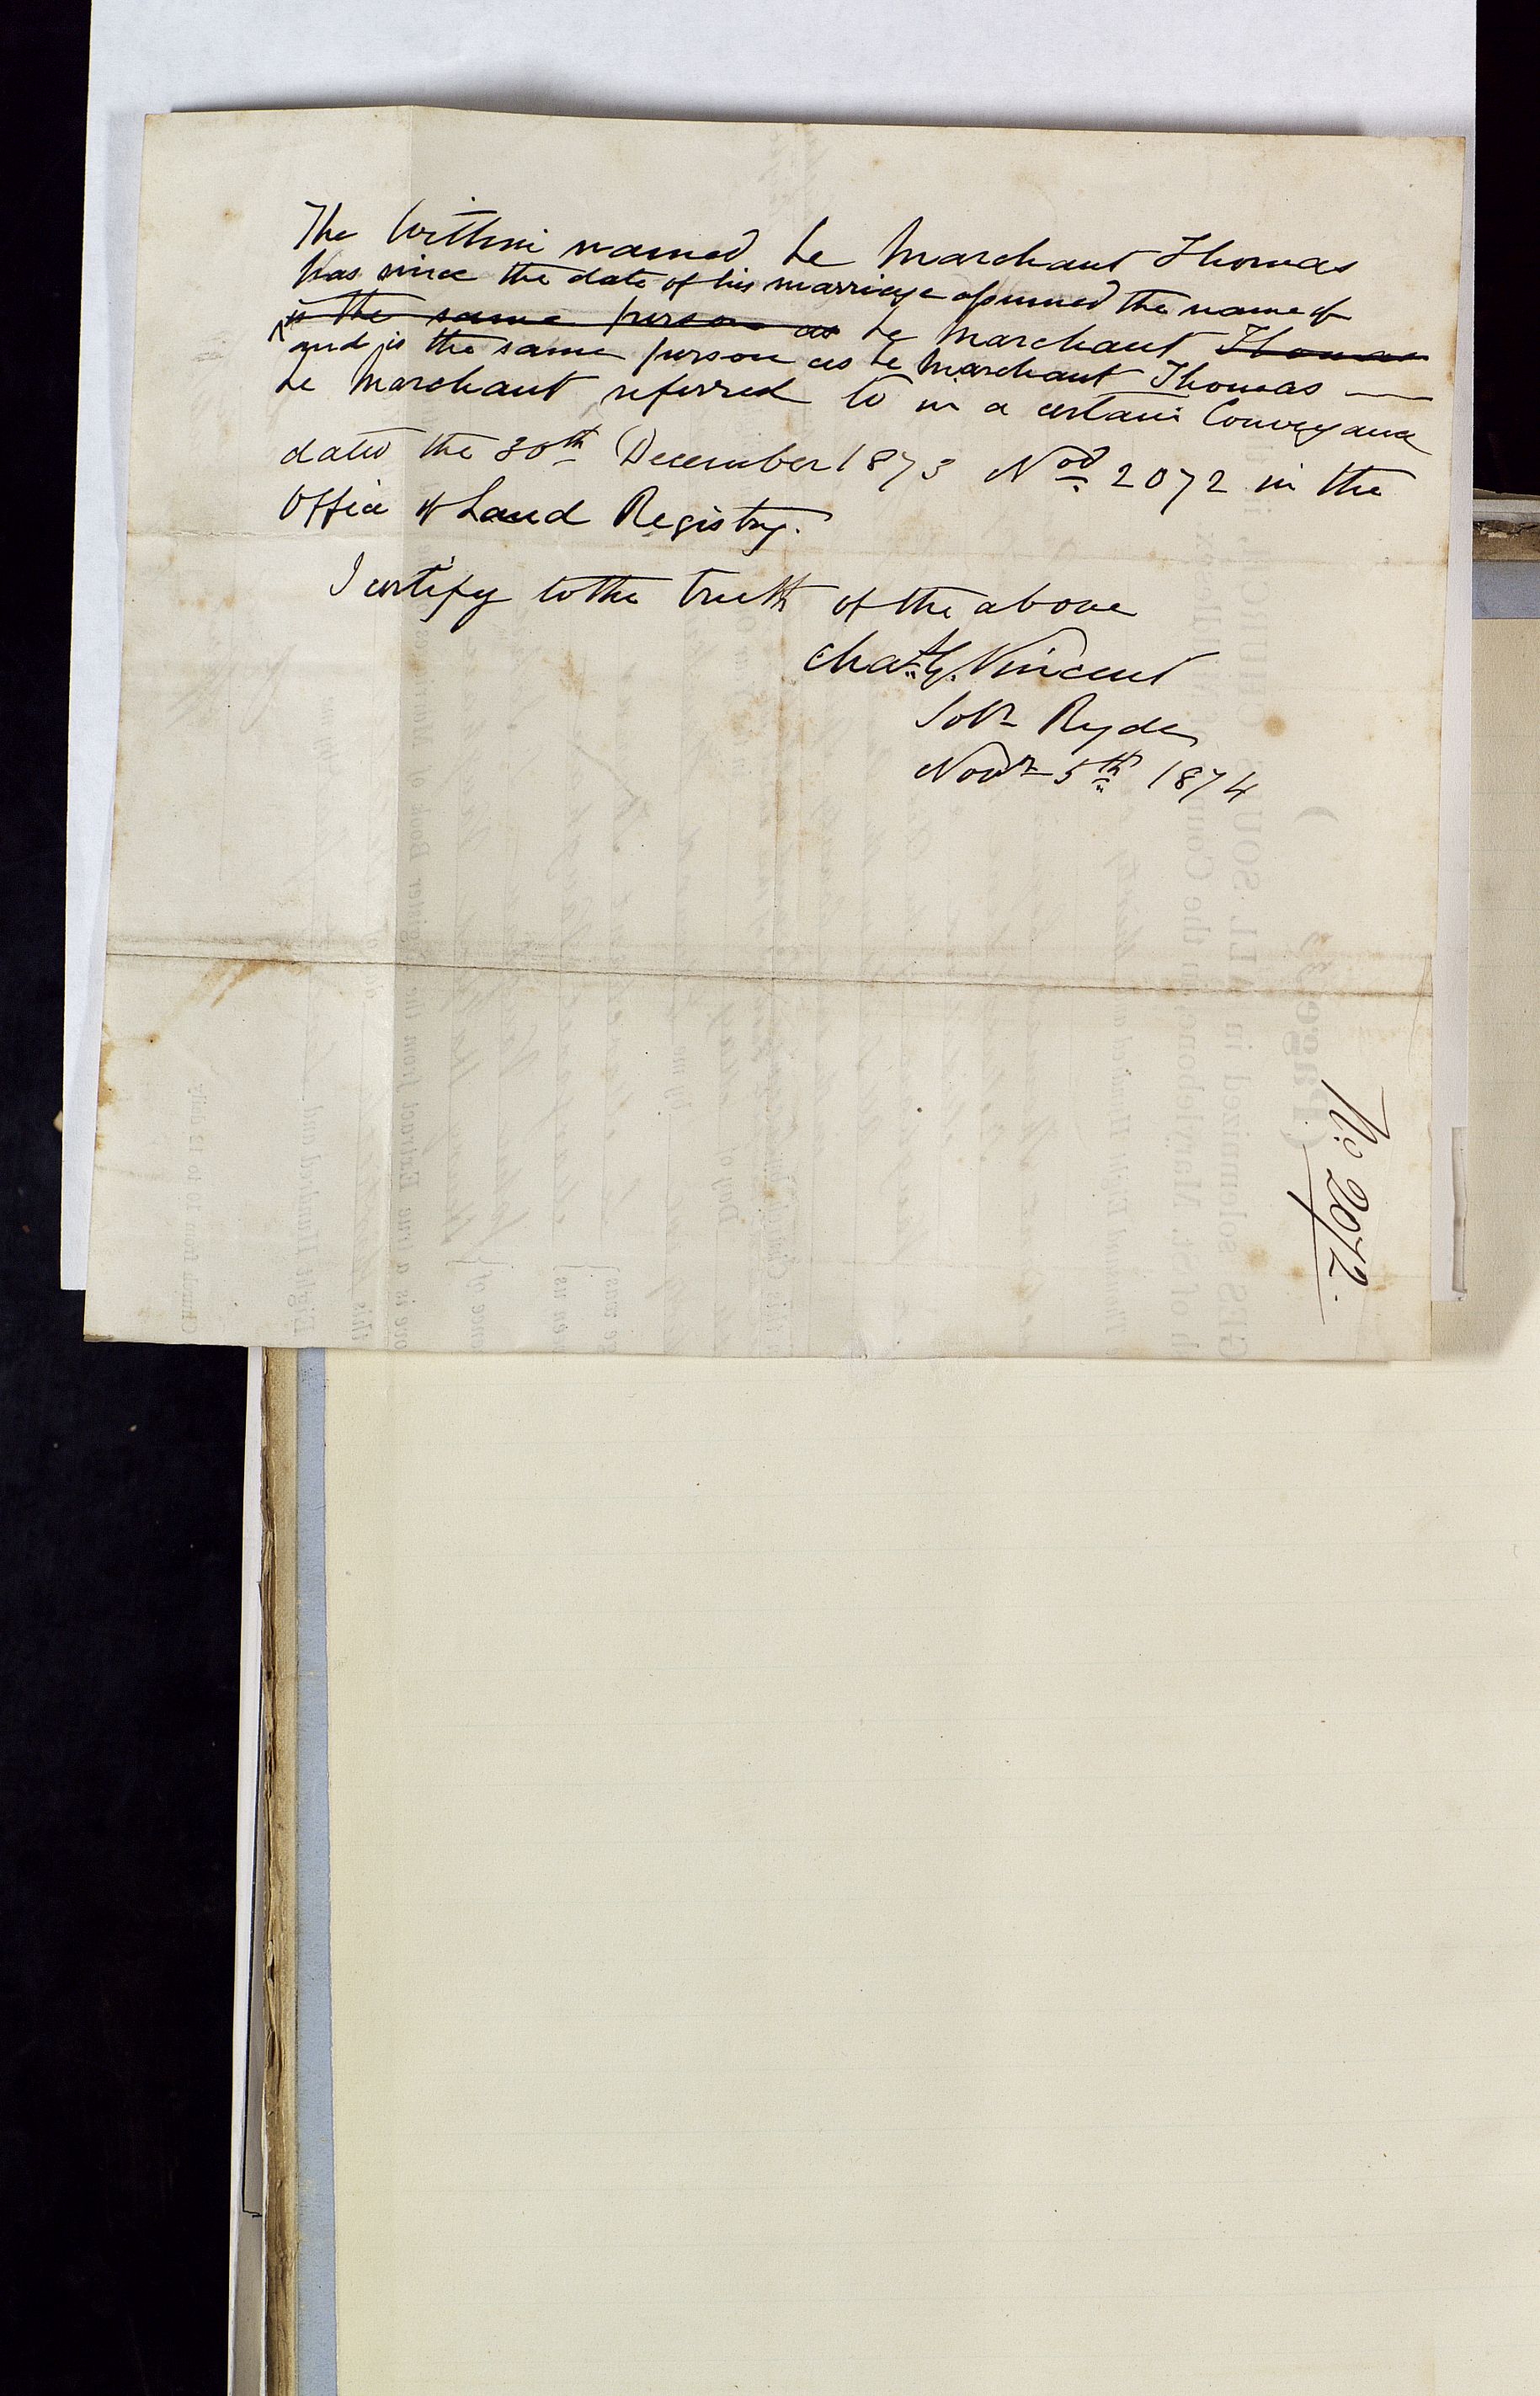 The Within named Le Marchant Thomas
has since the date of his marriage assumed the name of
is the same person as Le Marchant Thomas
and is the same person as Le Marchant Thomas
Le Marchant referred to in a certain Conveyance
dated the 30th December 1873 Nod 2072 in the
Office of Land Registry.
I certify to the truth of the above
Chas. G. Vincent
Solr Ryde
Novr 5th 1874
No. 2072.